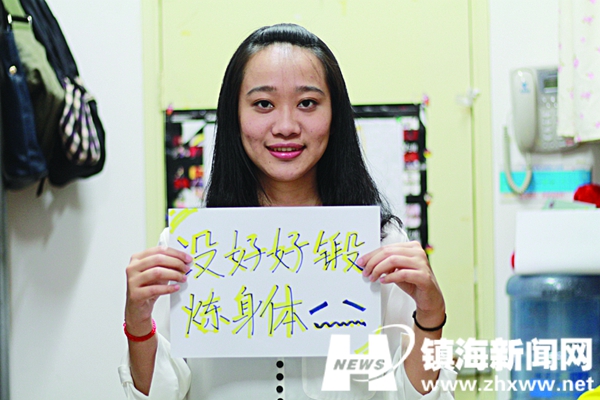 没好好锻
炼身体
NEWS
镇海新闻网
www.zhxww.net